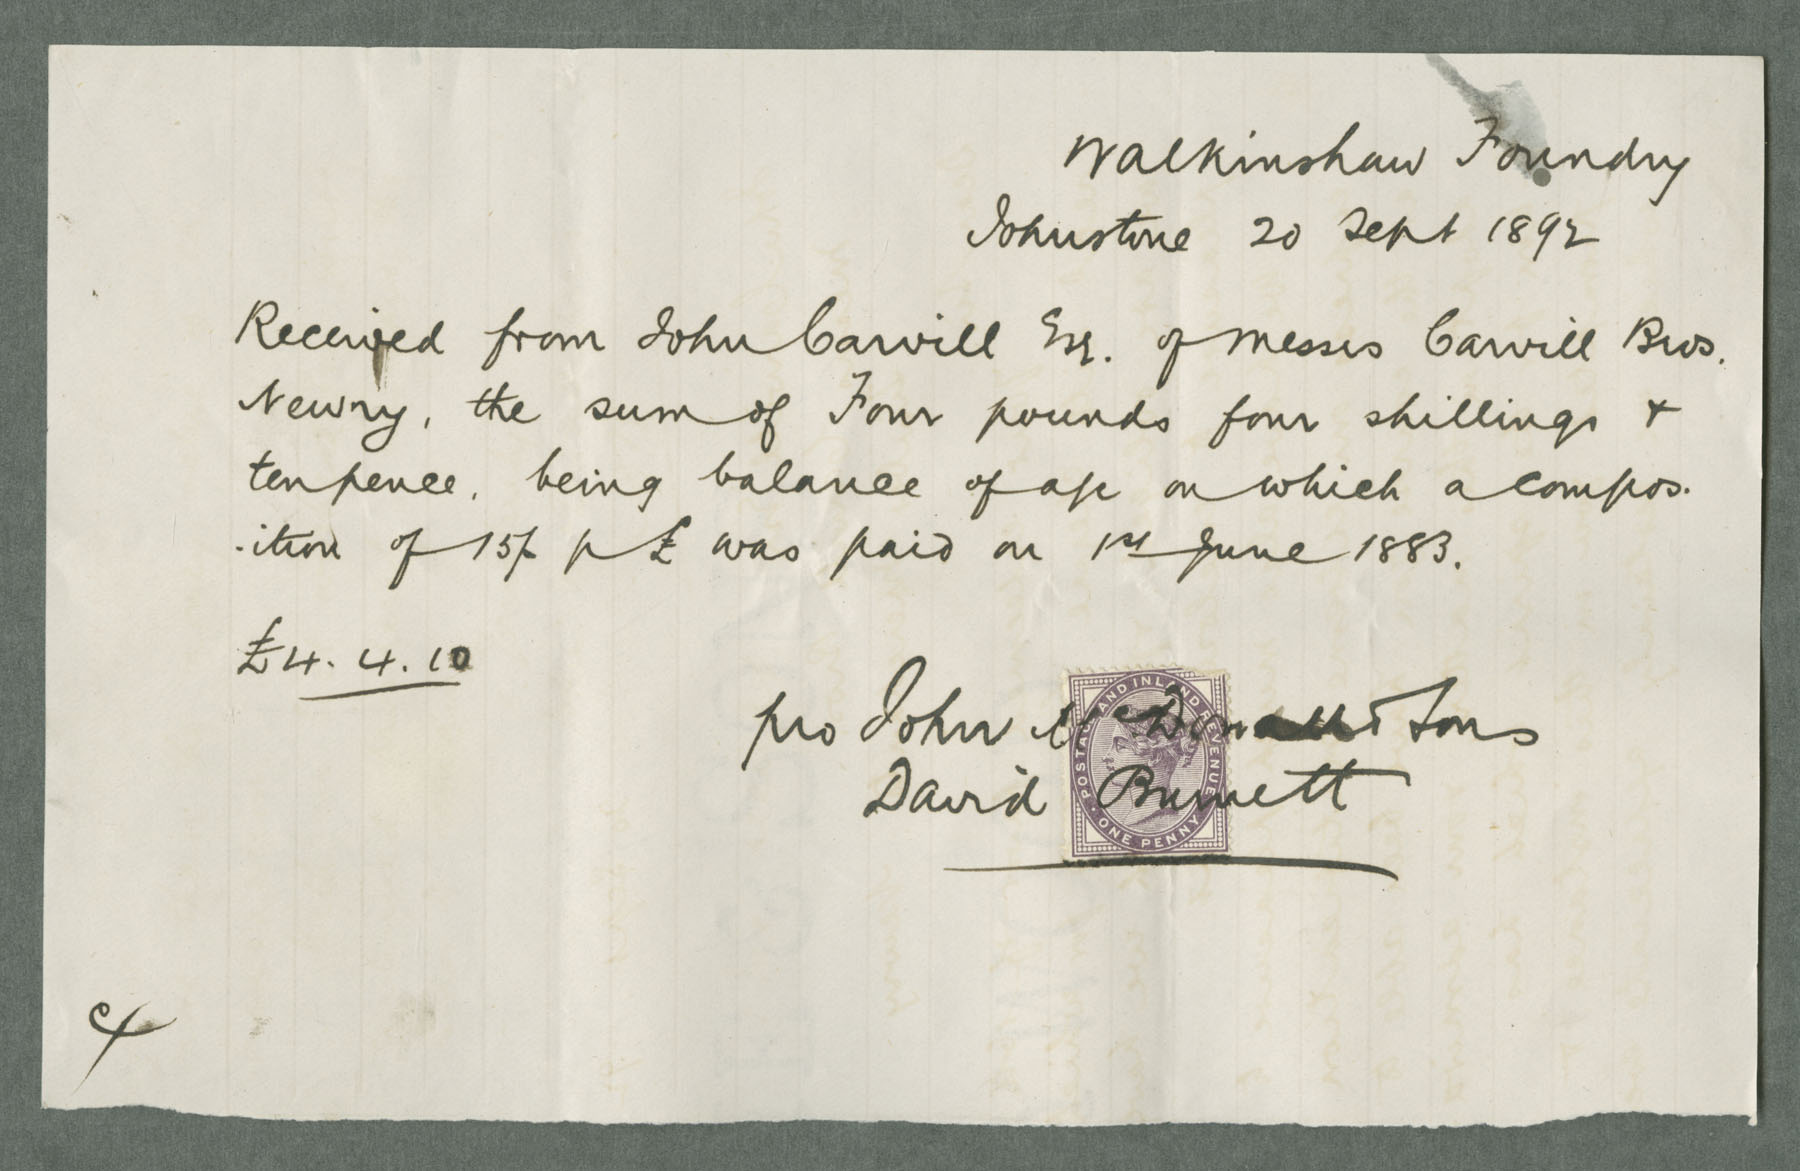 Walkinshaw Foundry
Johnstone 20 Sept 1892
Received from John Carvill Esq. of Messrs Carvill Bros.
Newry, the sum of Four pounds four shillings &
tenpence, being balance of a/c on which a compos-
-ition of 15/- p £ was paid on 1st June 1883.
£4. 4. 10
pro John McDonald & Sons
David
POSTAGE AND INLAND REVENUE
ONE PENNY
4